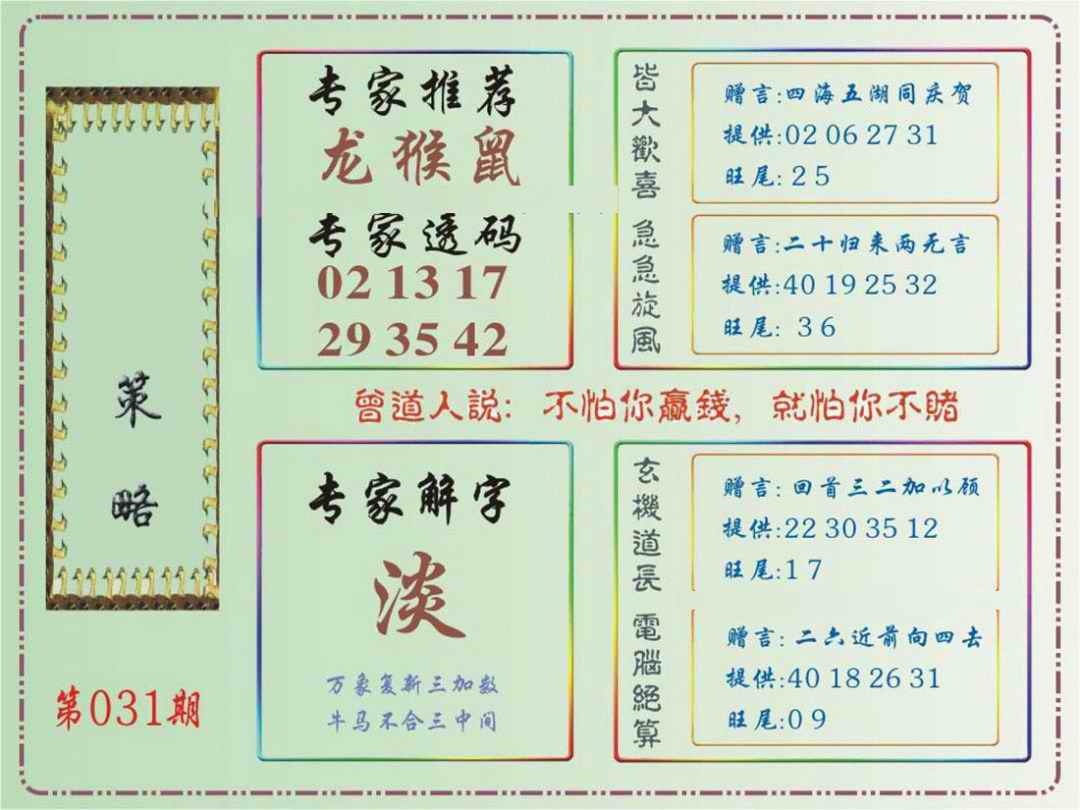 策略
第031期
专家推荐
龙猴鼠
专家透码
02 13 17
29 35 42
皆大歡喜
赠言:四海五湖同庆贺
提供:02 06 27 31
旺尾: 2 5
急急旋風
赠言:二十归来两无言
提供:40 19 25 32
旺尾: 3 6
曾道人説: 不怕你贏錢, 就怕你不賭
专家解字
淡
万象复新三加数
牛马不合三中间
玄機道長
赠言: 回首三二加以顾
提供:22 30 35 12
旺尾:1 7
電腦絕算
赠言: 二六近前向四去
提供:40 18 26 31
旺尾:0 9